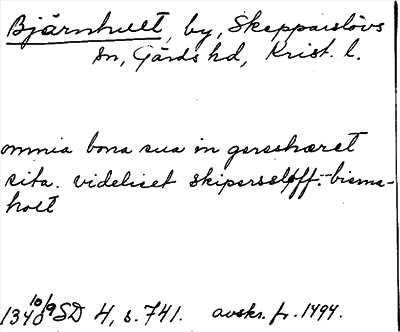 Bjärnhult, by, Skepparslövs
sn, Gärds hd, Krist. l.
omnia bona sua in gersshæret
sita. videlicet skiperssløff.-bierns-
holt
1340 10/9 SD 4, s. 741. avskr. fr. 1494.